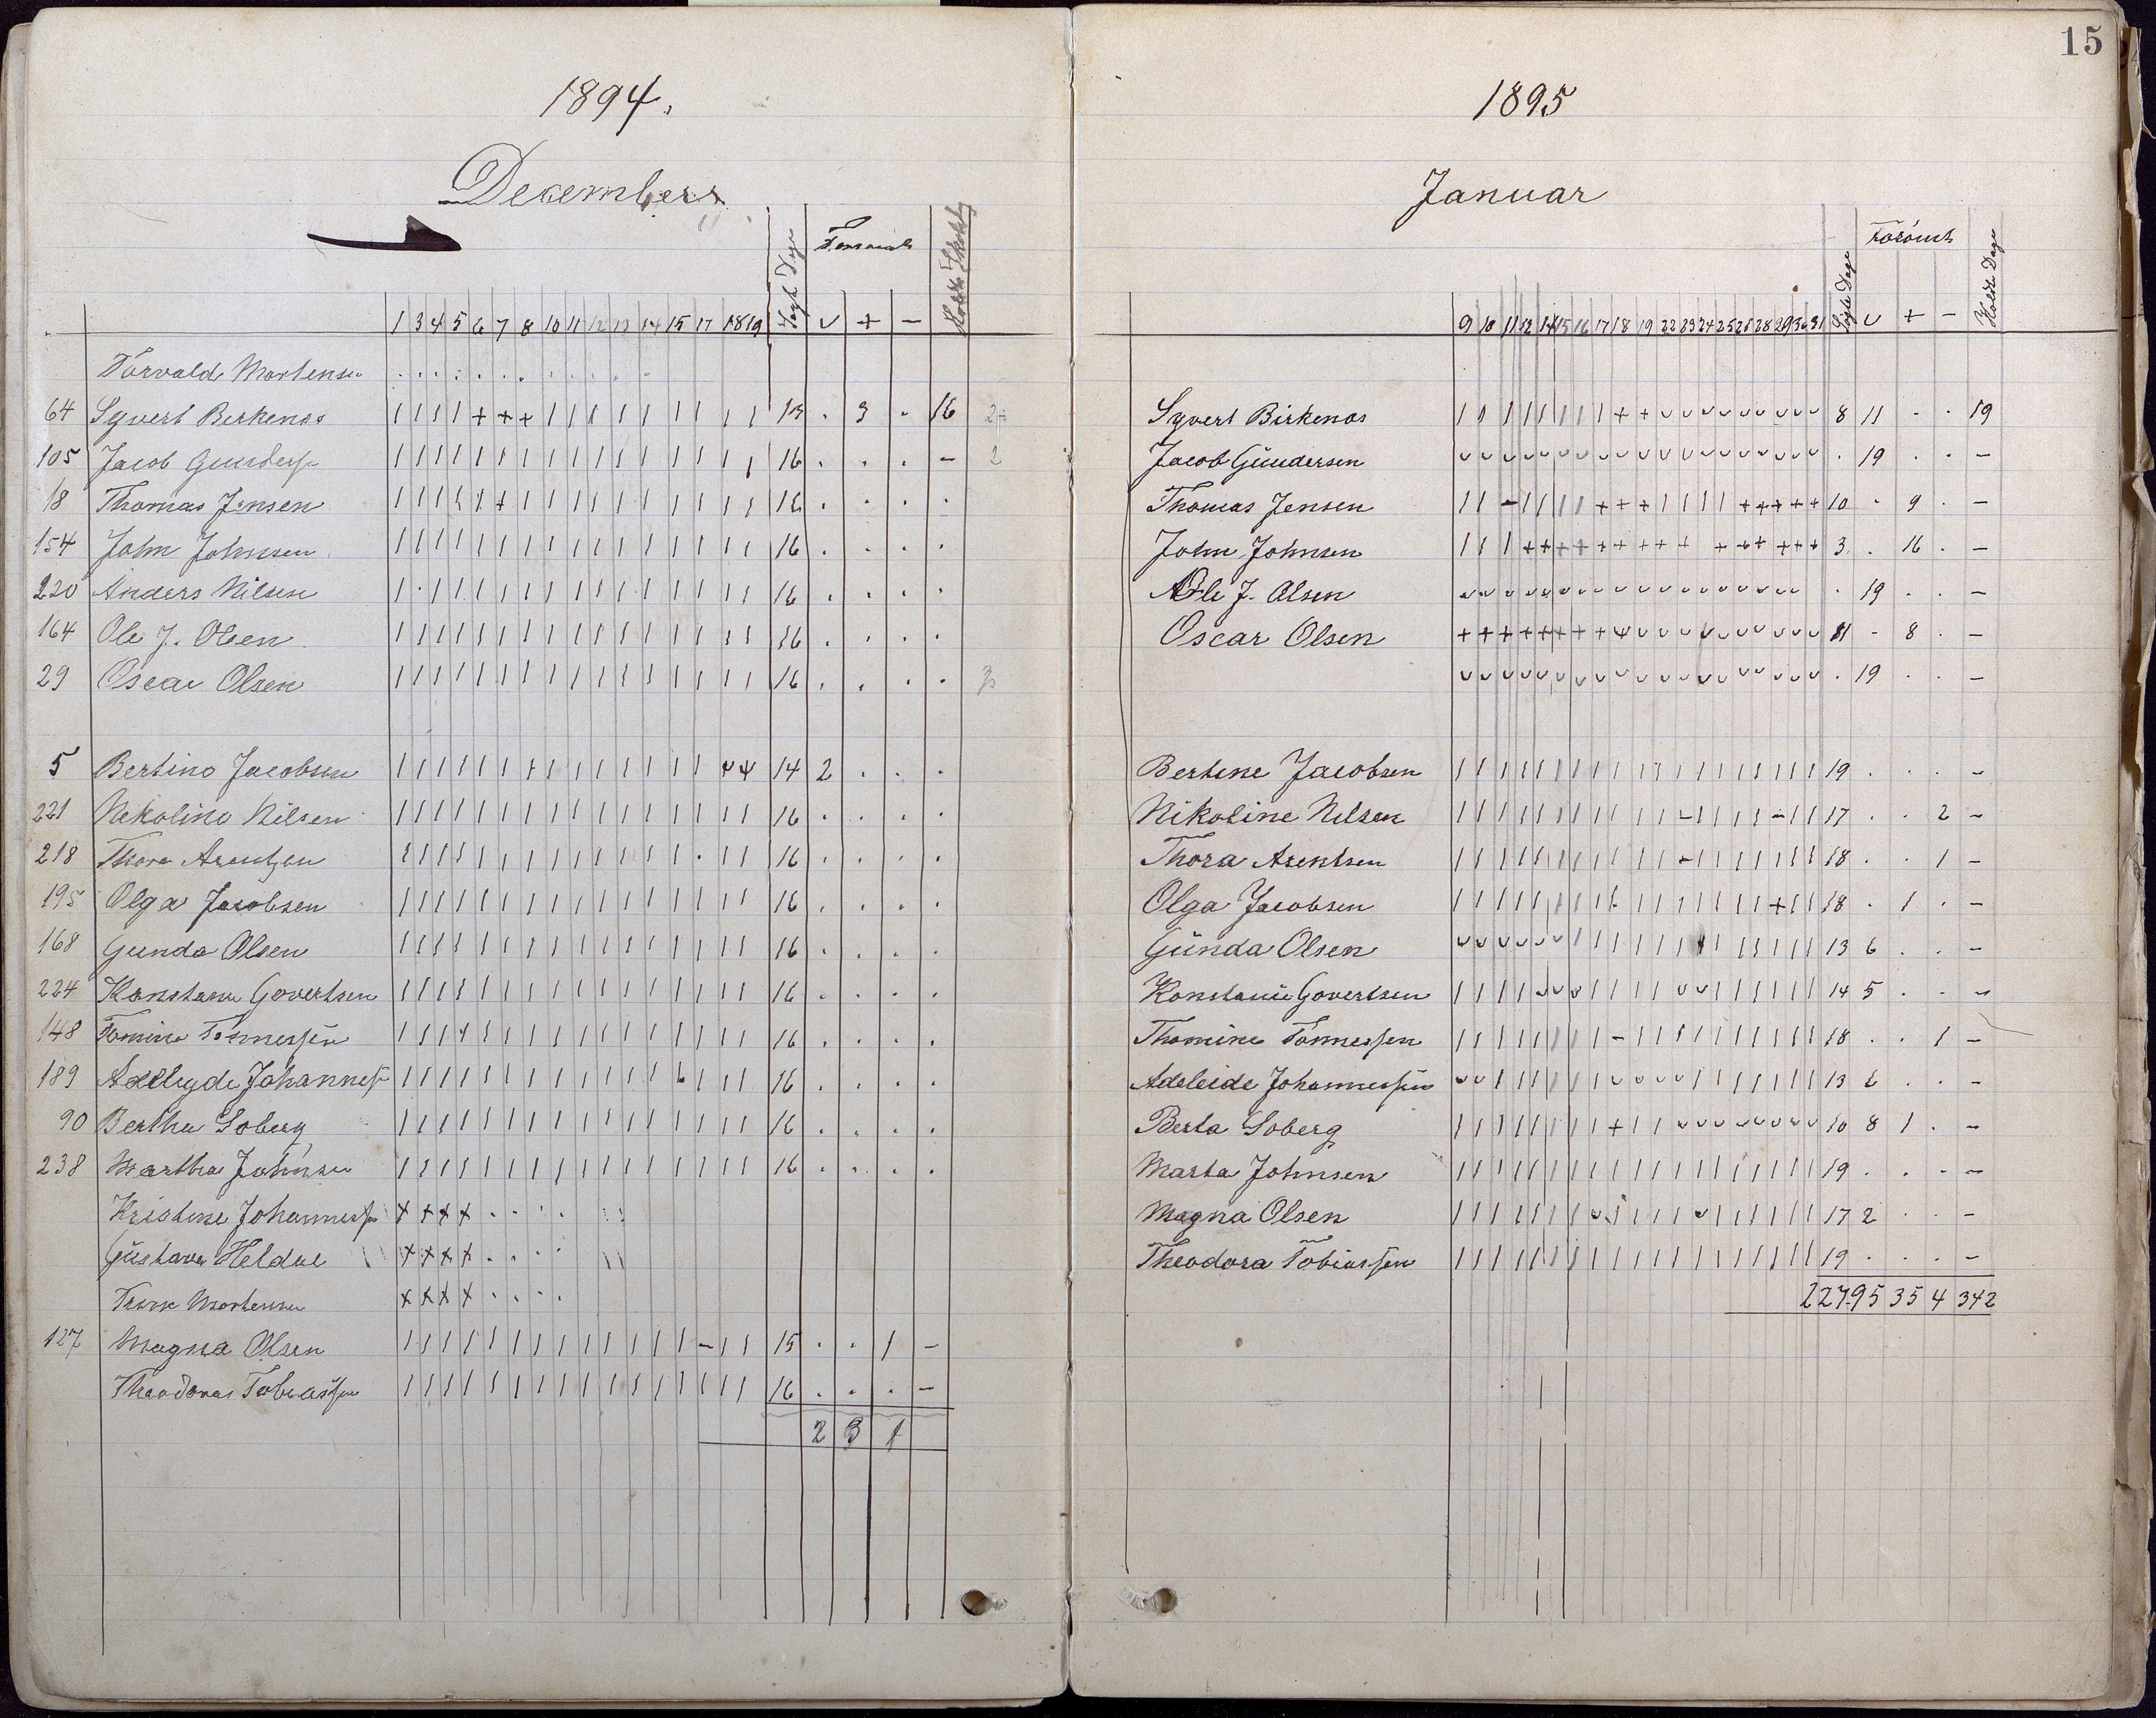 1894.
December
Søgt Dage Forsømt Holdte Skoledage
1 3 4 5 6 7 8 10 11 12 13 14 15 17 18 19 ᴗ + -
Torvald Mortensen . . . . . . . . . . . .
64 Syvert Birkenes | | | | + + + | | | | | | | | | 13 . 3 . 16 2+
105 Jacob Gunders | | | | | | | | | | | | | | | | 16 . . . - 2
18 Thomas Jensen | | | | | + | | | | | | | | | | 16 . . . .
154 John Johnsen | | | | | | | | | | | | | | | | 16 . . . .
220 Anders Nilsen | . | | | | | | | | | | | | | | 16 . . . .
164 Ole J. Olsen | | | | | | | | | | | | | | | | 16 . . . .
29 Oscar Olsen | | | | | | | | | | | | | | | | 16 . . . . 3
5 Bertine Jacobsen | | | | | | | | | | | | | | ᴗ ᴗ 14 2 . . .
221 Nikoline Nilsen | | | | | | | | | | | | | | | | 16 . . . .
218 Thora Arentzen | | | | | | | | | | | | | . | | 16 . . . .
195 Olga Jacobsen | | | | | | | | | | | | | | | | 16 . . . .
168 Gunda Olsen | | | | | | | | | | | | | | | | 16 . . . .
224 Konstanse Govertsen | | | | | | | | | | | | | | | | 16 . . . .
148 Tomine Tønnessen | | | | | | | | | | | | | | | | 16 . . . .
189 Adelheyde Johanness | | | | | | | | | | | | | | | | 16 . . . .
90 Berthe Soberg | | | | | | | | | | | | | | | | 16 . . . .
238 Marthe Johnsen | | | | | | | | | | | | | | | | 16 . . . .
Kristine Johannessen + + + + . . . .
Gustava Heldal + + + + . . . .
Mortensen + + + + . . . .
127 Magna Olsen | | | | | | | | | | | | | - | | 15 . . 1 -
Theodora Tobiassen | | | | | | | | | | | | | | | | 16 . . . -
2 3 1
15
1895
Januar
Søgte Dage Forsømt Holdte Dage
9 10 11 12 14 15 16 17 18 19 22 23 24 25 26 28 29 30 31 ᴗ + -
Syvert Birkenes | | | | | | | | + + ᴗ ᴗ ᴗ ᴗ ᴗ ᴗ ᴗ ᴗ ᴗ 8 11 . . 19
Jacob Gundersen ᴗ ᴗ ᴗ ᴗ ᴗ ᴗ ᴗ ᴗ ᴗ ᴗ ᴗ ᴗ ᴗ ᴗ ᴗ ᴗ ᴗ ᴗ ᴗ . 19 . . -
Thomas Jensen | | - | | | | + + + | | | | + + + + + 10 . 9 . -
John Johnsen | | | + + + + + + + + + + + + + + + + 3 . 16 . -
Ole J. Olsen ᴗ ᴗ ᴗ ᴗ ᴗ ᴗ ᴗ ᴗ ᴗ ᴗ ᴗ ᴗ ᴗ ᴗ ᴗ ᴗ ᴗ ᴗ . 19 . . -
Oscar Olsen + + + + + + + + ᴗ ᴗ ᴗ ᴗ ᴗ ᴗ ᴗ ᴗ ᴗ ᴗ ᴗ 11 - 8 . -
ᴗ ᴗ ᴗ ᴗ ᴗ ᴗ ᴗ ᴗ ᴗ ᴗ ᴗ ᴗ ᴗ ᴗ ᴗ ᴗ ᴗ ᴗ ᴗ . 19 . . -
Bertine Jacobsen | | | | | | | | | | | | | | | | | | | 19 . . . -
Nikoline Nilsen | | | | | | | | | | | - | | | | - | | 17 . . 2 -
Thora Arentsen | | | | | | | | | | | - | | | | | | | 18 . . 1 -
Olga Jacobsen | | | | | | | | | | | | | | | | + | | 18 . 1 . -
Gunda Olsen ᴗ ᴗ ᴗ ᴗ ᴗ ᴗ | | | | | | | | | | | | | 13 6 . . -
Konstanse Govertsen | | | | ᴗ ᴗ ᴗ | | | | ᴗ ᴗ | | | | | | 14 5 . . -
Thomine Tønnessen | | | | | | | | - | | | | | | | | | | 18 . . 1 -
Adeleide Johannessen ᴗ ᴗ | | | | | | ᴗ ᴗ ᴗ ᴗ | | | | | | | 13 6 . . -
Berta Soberg | | | | | | | | + | | ᴗ ᴗ ᴗ ᴗ ᴗ ᴗ ᴗ ᴗ 10 8 1 . -
Marta Johnsen | | | | | | | | | | | | | | | | | | | 19 . . . -
Magna Olsen | | | | | | | ᴗ | | | | ᴗ | | | | | | 17 2 . . -
Theodora Tobiassen | | | | | | | | | | | | | | | | | | | 19 . . . -
227 95 35 4 342